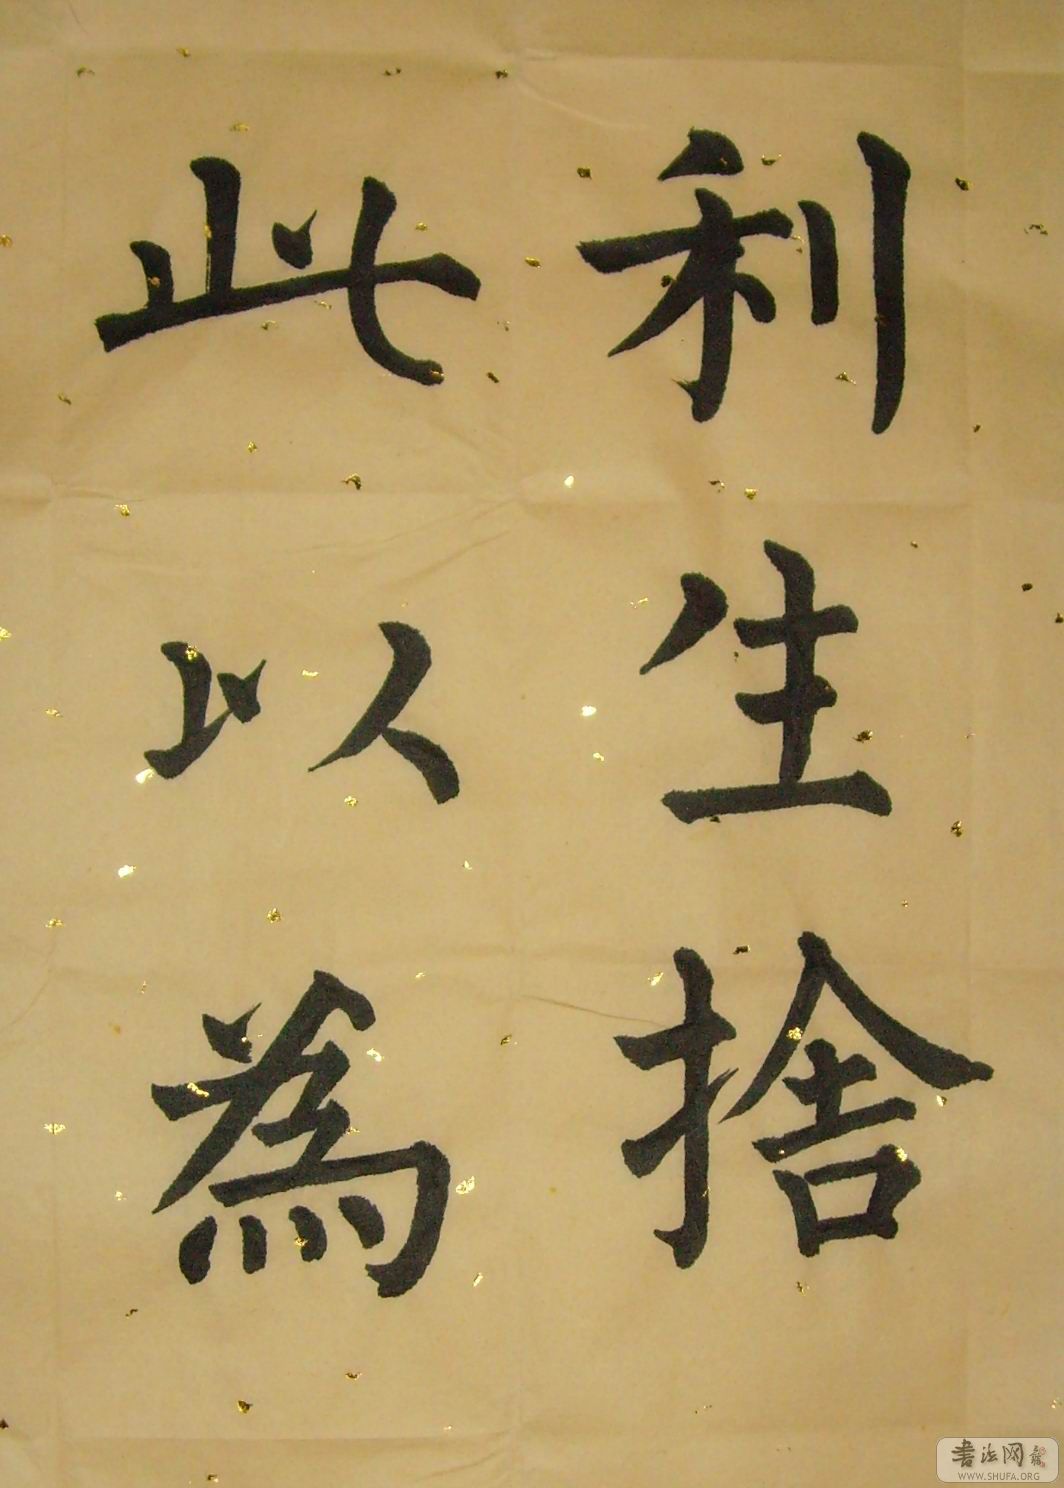 利生捨
此以為
書法网
WWW.SHUFA.ORG